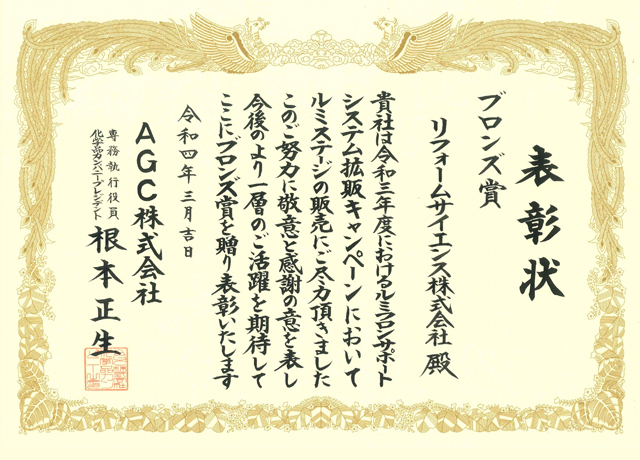 表彰状
ブロンズ賞
リフォームサイエンス株式会社 殿
貴社は令和三年度におけるルミフロンサポート
システム拡販キャンペーンにおいて
ルミステージの販売にご尽力頂きました
このご努力に敬意と感謝の意を表し
今後のより一層のご活躍を期待して
ここにブロンズ賞を贈り表彰いたします
令和四年三月吉日
AGC株式会社
専務執行役員
化学品カンパニープレジデント
根本正生